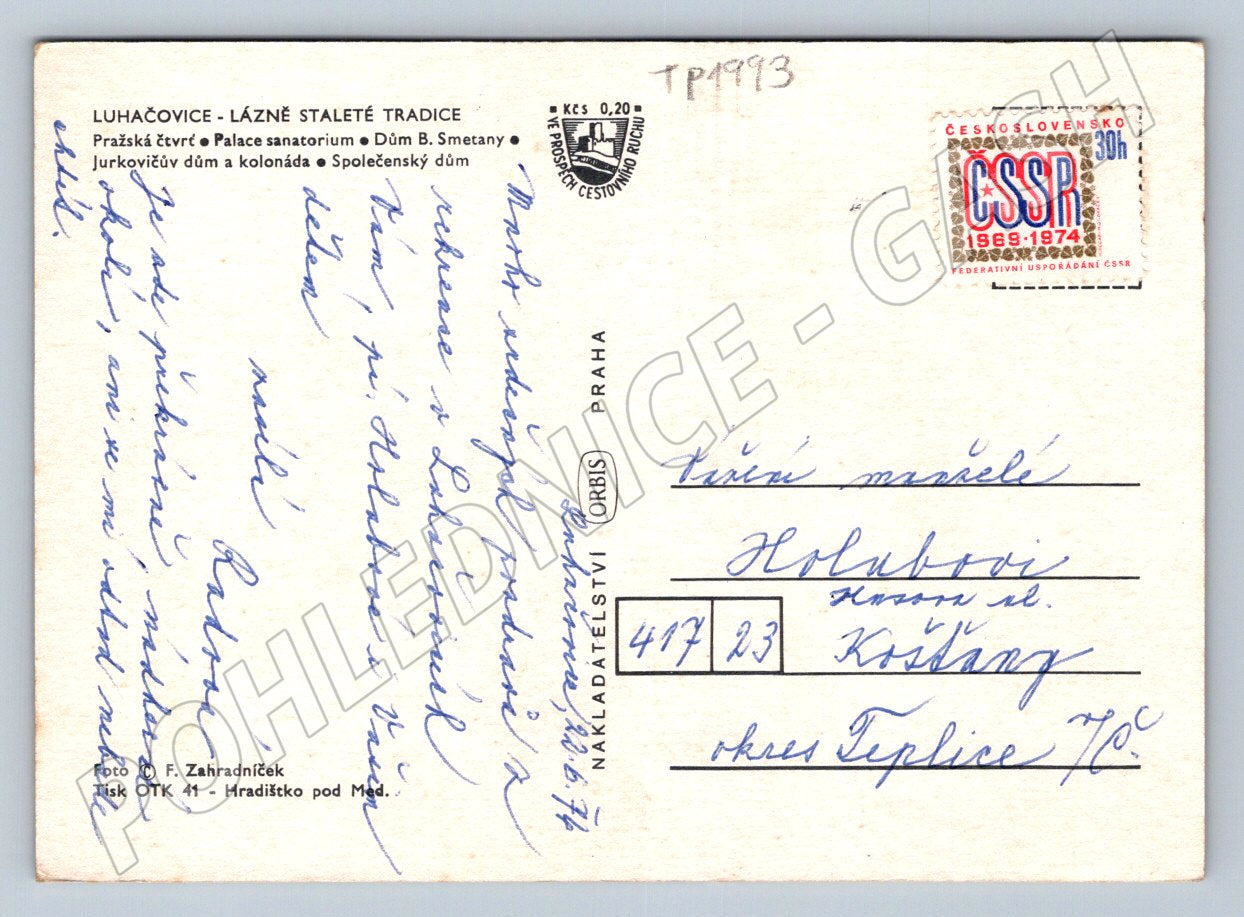 TP1993
LUHAČOVICE - LÁZNĚ STALETÉ TRADICE
Pražská čtvrť • Palace sanatorium • Dům B. Smetany •
Jurkovičův dům a kolonáda • Společenský dům
Kčs 0,20
VE PROSPĚCH CESTOVNÍHO RUCHU
ČESKOSLOVENSKO
30h
ČSSR
1969·1974
FEDERATIVNÍ USPOŘÁDÁNÍ ČSSR
Luhačovice, 22.6.74
Mnoho srdečných pozdravů z
rekreace v Luhačovicích
Vám, pí. Holubové i Vašim
dětem
zasílá
Radová.
Je zde překrásně, nádherné
okolí, ani se mi odtud nebude
chtít.
NAKLADATELSTVÍ ORBIS PRAHA
Vážení manželé
Holubovi
Husova ul.
417 23 Košťany
okres Teplice v/Č.
Foto © F. Zahradníček
Tisk OTK 41 - Hradištko pod Med.
POHLEDNICE - GACH